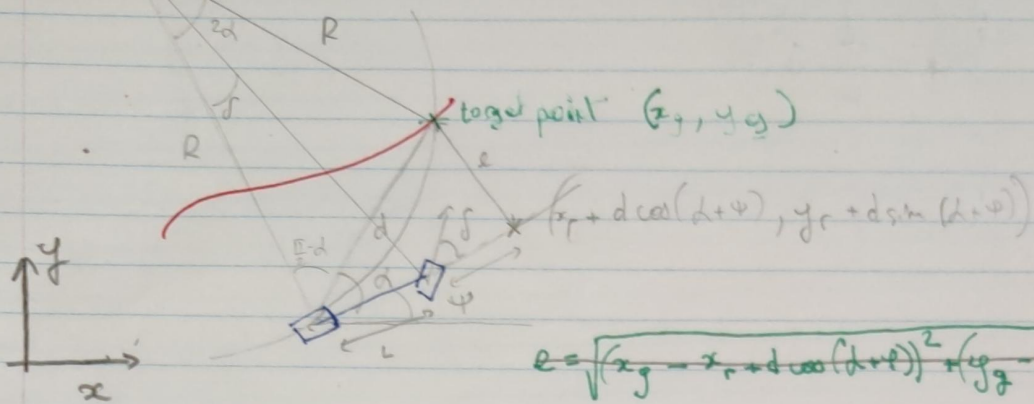 2α
R
target point (x_g, y_g)
δ
R
e
d
δ
(x_r + d cos(α+ψ), y_r + d sin(α+ψ))
y
π/2-α
α
ψ
L
x
e = √(x_g - x_r + d cos(α+ψ))² + (y_g -